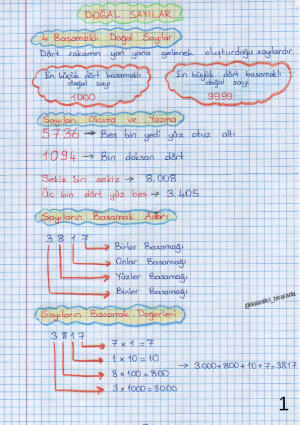 DOĞAL SAYILAR
4 Basamaklı Doğal Sayılar
Dört rakamın yan yana gelerek oluşturduğu sayılardır.
En büyük dört basamaklı doğal sayı
1000
En büyük dört basamaklı doğal sayı
9999
Sayıları Okuma ve Yazma
5736 → Beş bin yedi yüz otuz altı
1094 → Bin doksan dört
Sekiz bin sekiz → 8.008
Üç bin dört yüz beş → 3.405
Sayıların Basamak Adları
3817
Birler Basamağı
Onlar Basamağı
Yüzler Basamağı
Binler Basamağı
Sayıların Basamak Değerleri
3817
7 x 1 = 7
1 x 10 = 10
8 x 100 = 800
3 x 1000 = 3000
→ 3000+800+10+7=3817
1